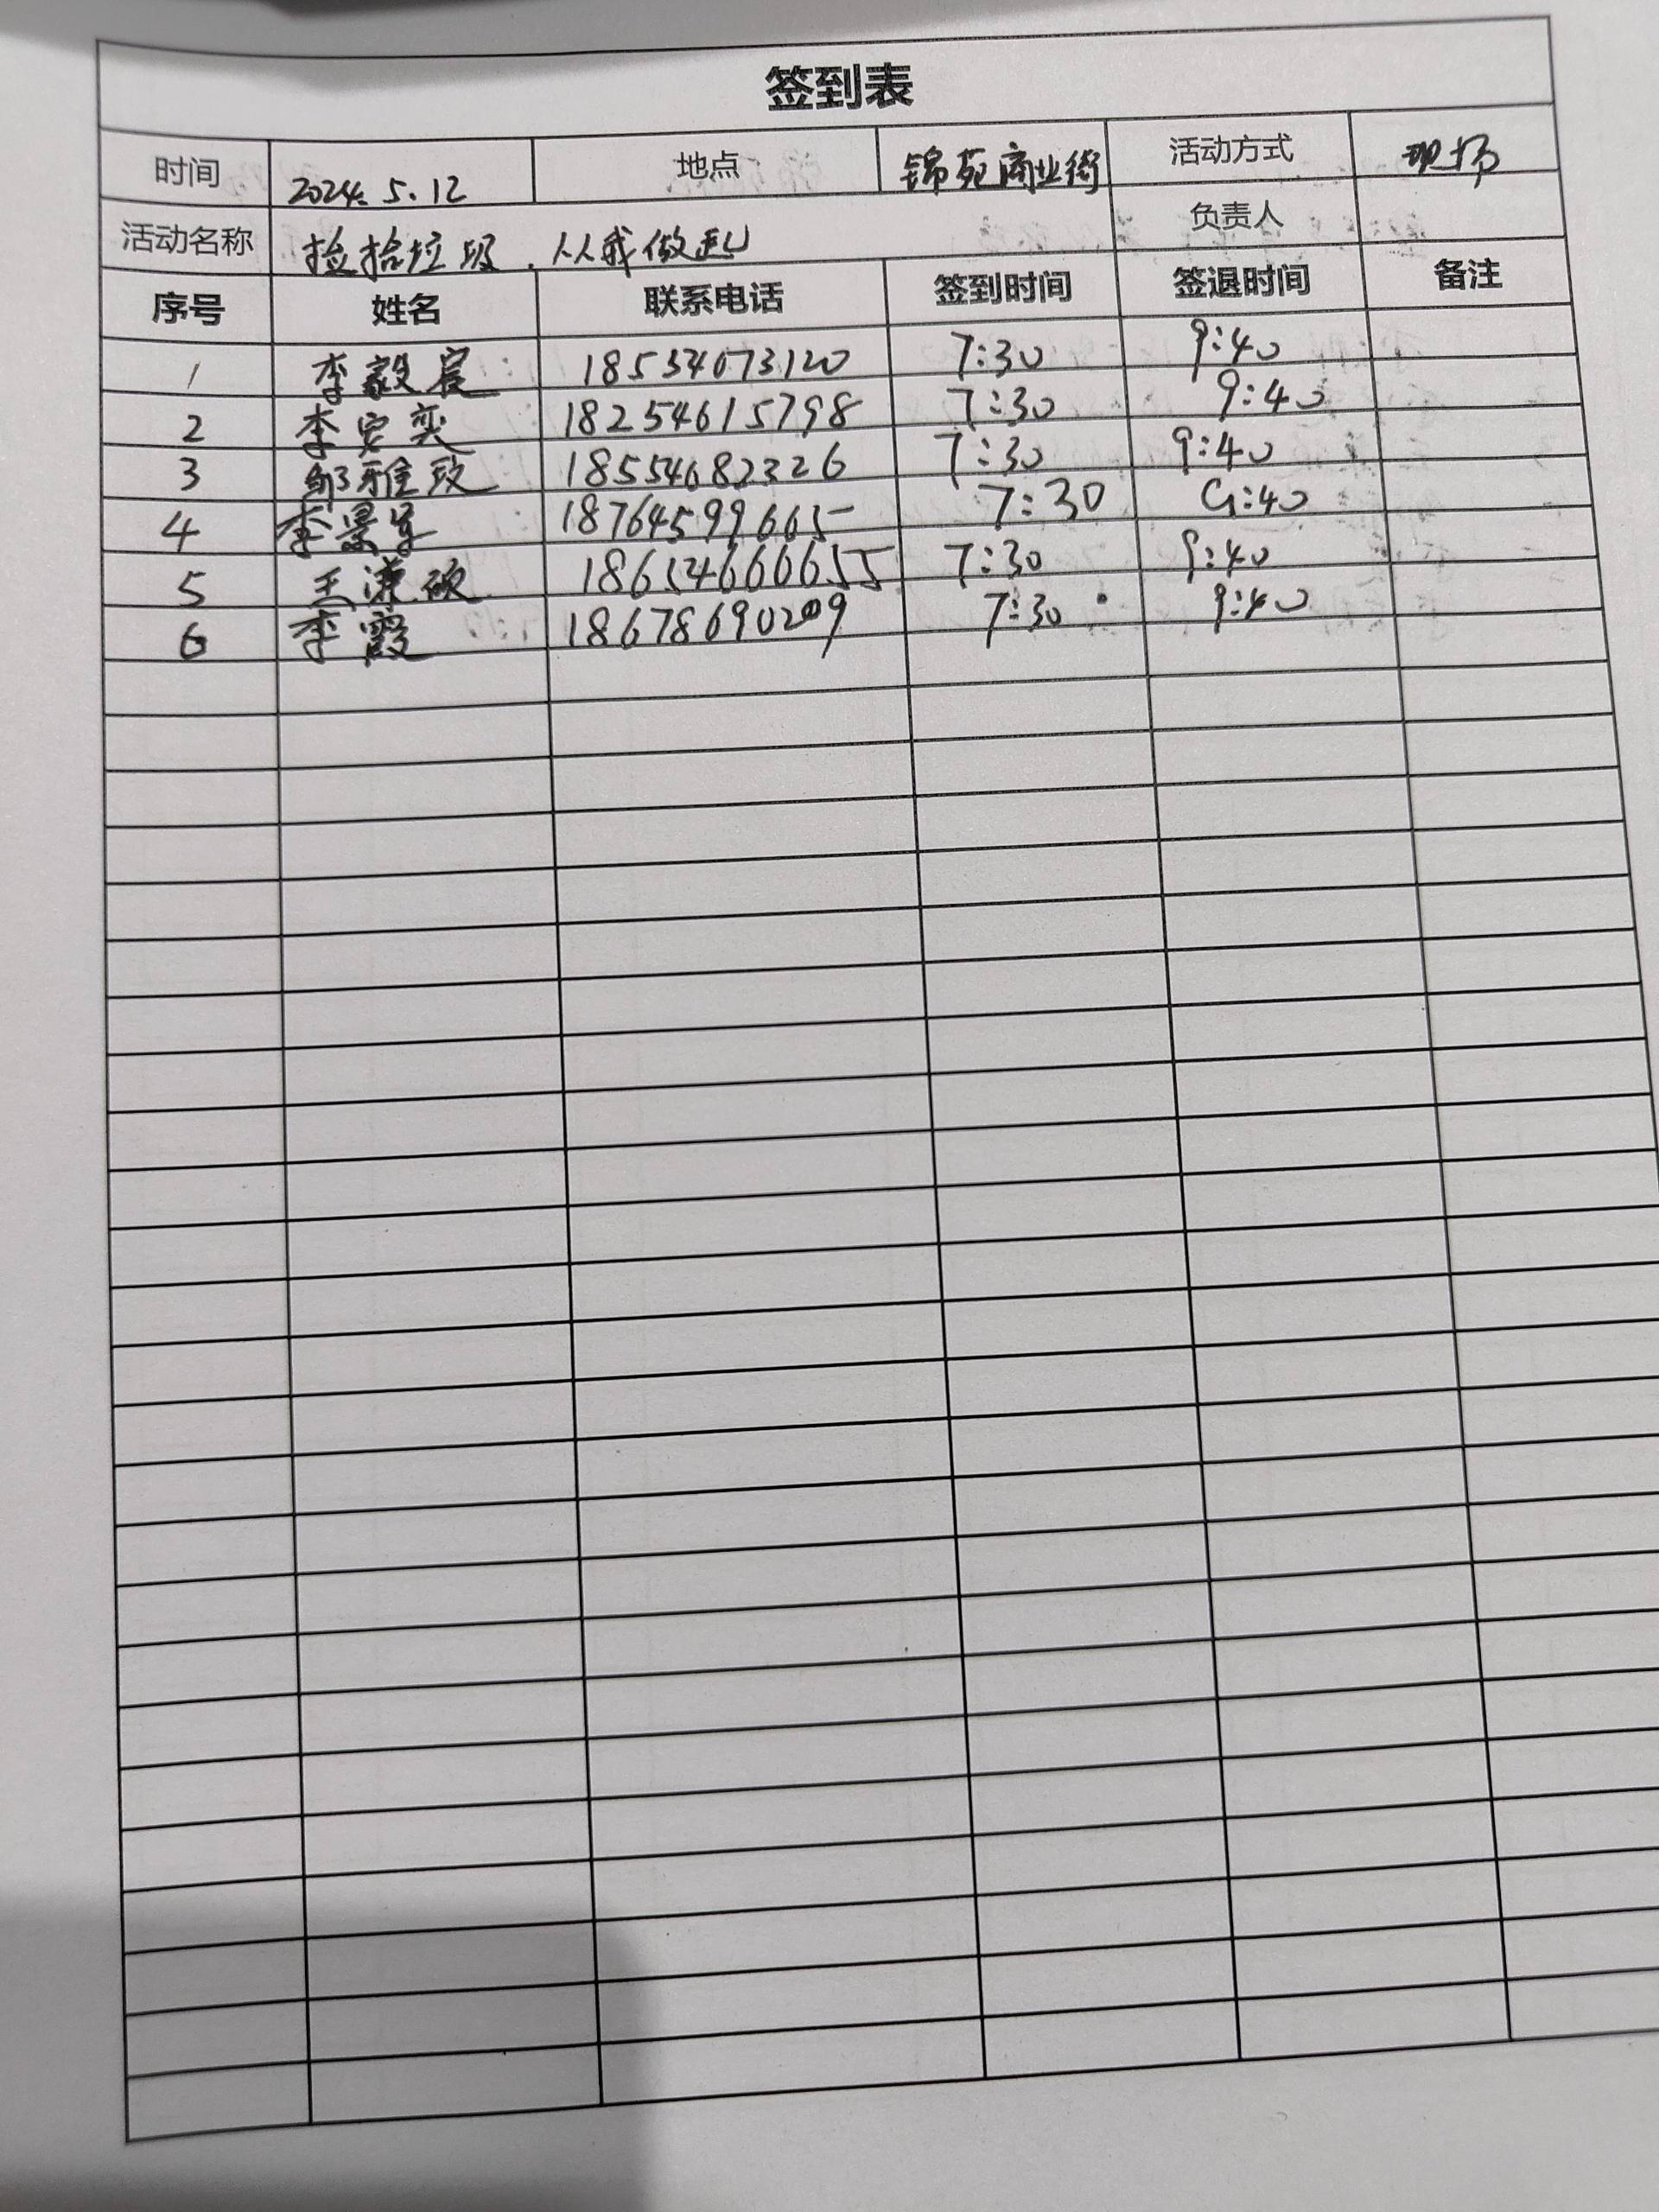 签到表
时间 2024.5.12 地点 锦苑商业街 活动方式 现场
活动名称 捡拾垃圾.从我做起 负责人
序号 姓名 联系电话 签到时间 签退时间 备注
1 李毅宸 18534073120 7:30 9:40
2 李安奕 18254615798 7:30 9:40
3 邹雅玟 18554682326 7:30 9:40
4 李景 18764599665 7:30 9:40
5 王 硕 18654666655 7:30 9:40
6 李霞 18678690209 7:30 9:40